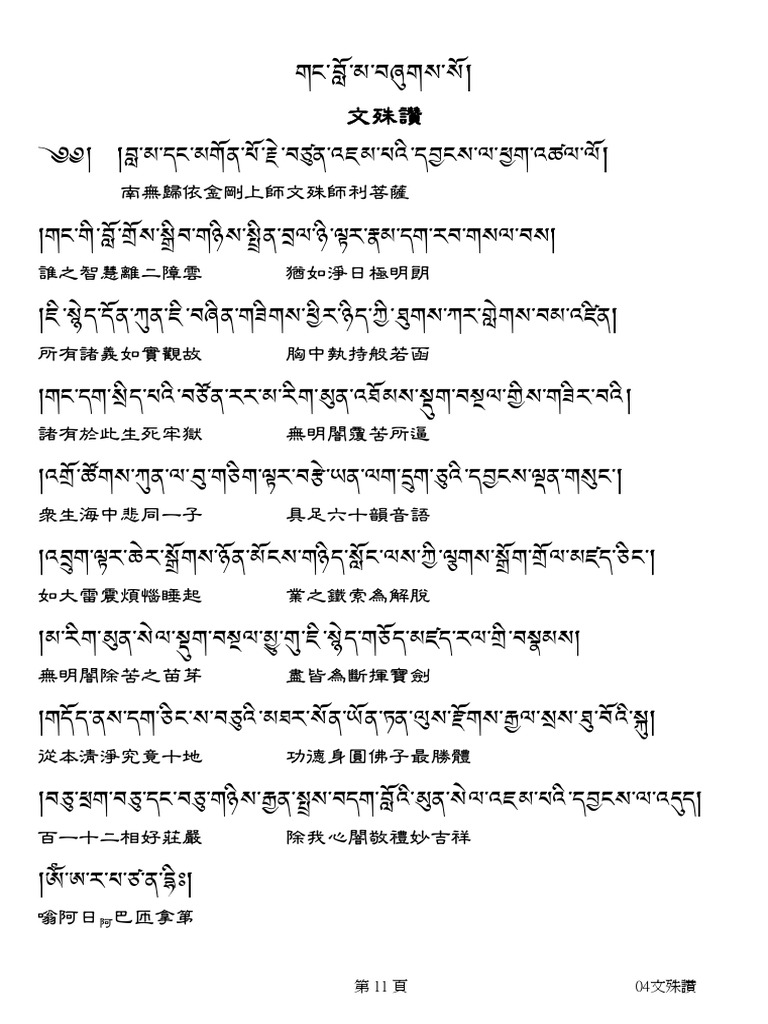 གང་བློ་མ་བཞུགས་སོ།
文殊讚
༄༅།   །བླ་མ་དང་མགོན་པོ་རྗེ་བཙུན་འཇམ་པའི་དབྱངས་ལ་ཕྱག་འཚལ་ལོ།
南無歸依金剛上師文殊師利菩薩
།གང་གི་བློ་གྲོས་སྒྲིབ་གཉིས་སྤྲིན་བྲལ་ཉི་ལྟར་རྣམ་དག་རབ་གསལ་བས།
誰之智慧離二障雲 猶如淨日極明朗
།ཇི་སྙེད་དོན་ཀུན་ཇི་བཞིན་གཟིགས་ཕྱིར་ཉིད་ཀྱི་ཐུགས་ཀར་གླེགས་བམ་འཛིན།
所有諸義如實觀故 胸中執持般若函
།གང་དག་སྲིད་པའི་བཙོན་རར་མ་རིག་མུན་འཐོམས་སྡུག་བསྔལ་གྱིས་གཟིར་བའི།
諸有於此生死牢獄 無明闇覆苦所逼
།འགྲོ་ཚོགས་ཀུན་ལ་བུ་གཅིག་ལྟར་བརྩེ་ཡན་ལག་དྲུག་ཅུའི་དབྱངས་ལྡན་གསུང་།
眾生海中悲同一子 具足六十韻音語
།འབྲུག་ལྟར་ཆེར་སྒྲོགས་ཉོན་མོངས་གཉིད་སློང་ལས་ཀྱི་ལྕགས་སྒྲོག་གྲོལ་མཛད་ཅིང་།
如大雷震煩惱睡起 業之鐵索為解脫
།མ་རིག་མུན་སེལ་སྡུག་བསྔལ་མྱུ་གུ་ཇི་སྙེད་གཅོད་མཛད་རལ་གྲི་བསྣམས།
無明闇除苦之苗芽 盡皆為斷揮寶劍
།གདོད་ནས་དག་ཅིང་ས་བཅུའི་མཐར་སོན་ཡོན་ཏན་ལུས་རྫོགས་རྒྱལ་སྲས་ཐུ་བོའི་སྐུ།
從本清淨究竟十地 功德身圓佛子最勝體
།བཅུ་ཕྲག་བཅུ་དང་བཅུ་གཉིས་རྒྱན་སྤྲས་བདག་བློའི་མུན་སེལ་འཇམ་པའི་དབྱངས་ལ་འདུད།
百一十二相好莊嚴 除我心闇敬禮妙吉祥
།ཨོཾ་ཨ་ར་པ་ཙ་ན་དྷཱིཿ།
嗡阿日阿巴匝拿第
第 11 頁 04文殊讚